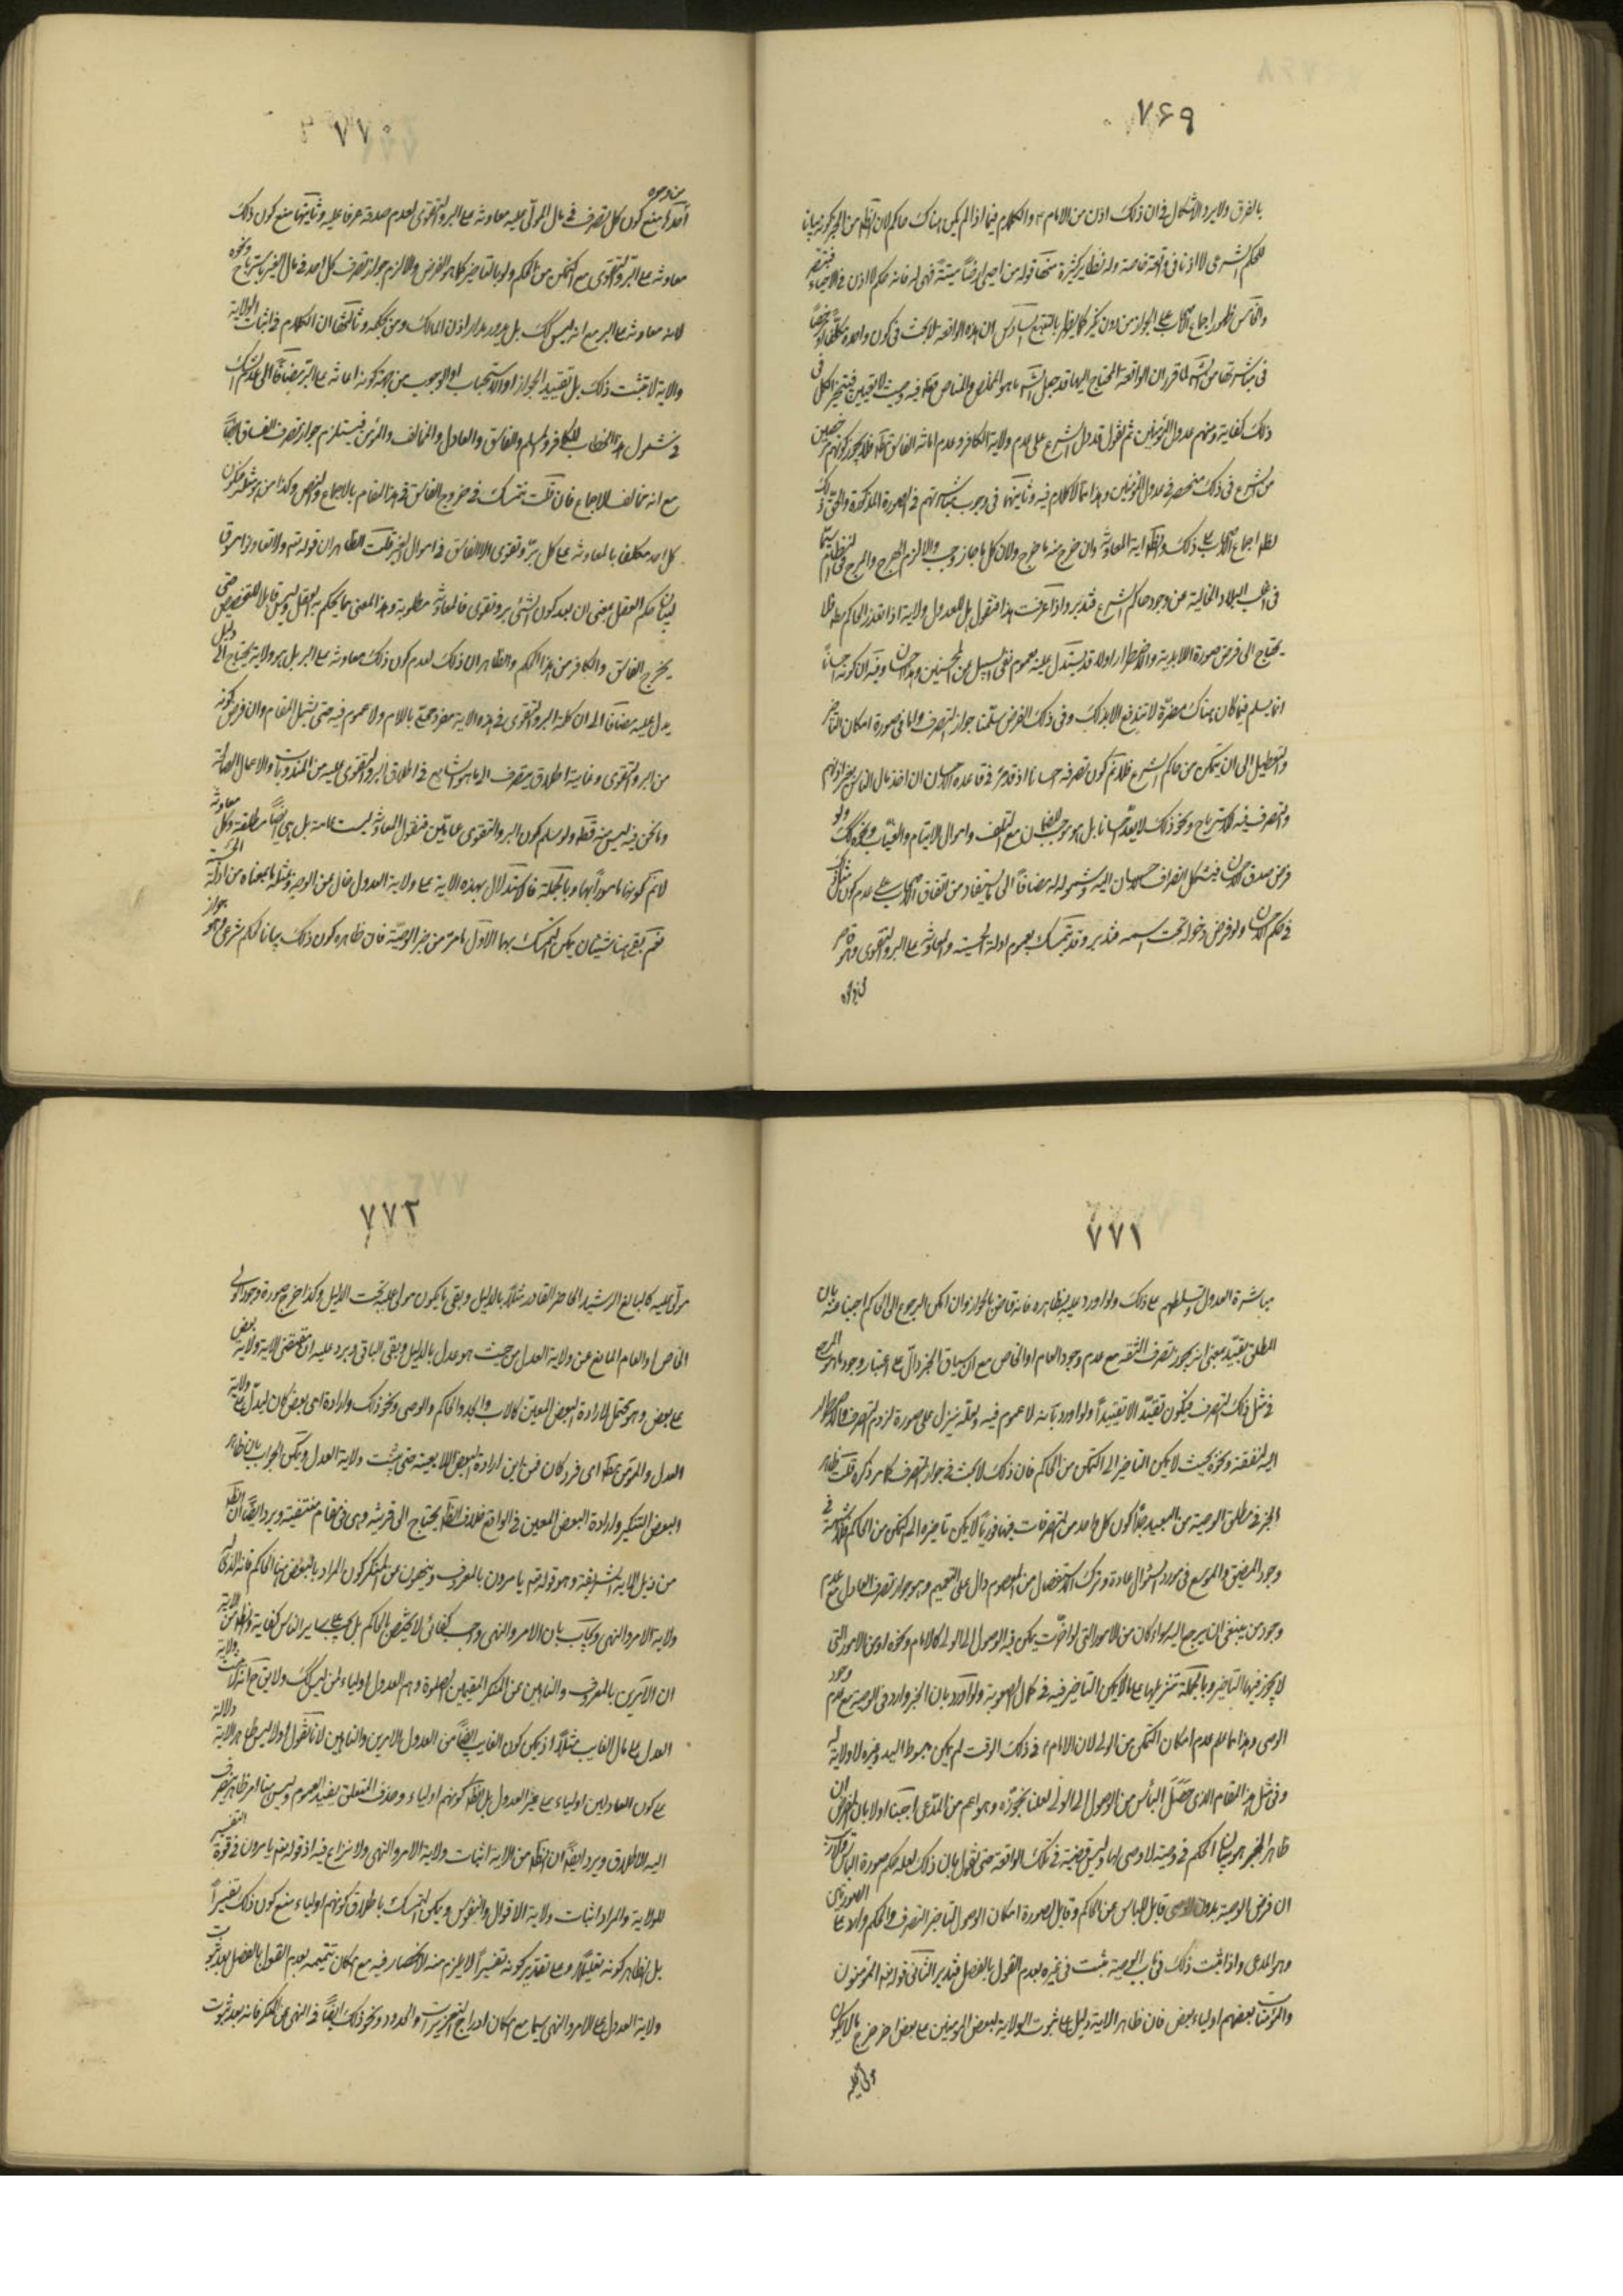 ۷۶۹
بالفرق ولا يرد الاشكال فى ان ذلك اذن من الامام ع والكلام فيما اذا لم يكن هناك حاكم لان الظ من الخبر كونه بيانا
للحكم الشرعى لا اذنا فى واقعة خاصة وله نظاير كثيرة منها قوله من احيى ارضاً ميتة فهى له فانه حكم لا اذن فى الاحياء
فى مباشرتها من الش لما تقرر ان الواقعة المحتاج اليها قد جعل الش
ذلك كفاية ومنهم عدول المؤمنين ثم نقول قد دل الشرع على عدم ولاية الكافر وعدم امانة الفاسق
من الشرع فى ذلك منحصر فى عدول المؤمنين وهذا مما لا كلام فيه وثانيهما فى وجوب مباشرتهم فى الصورة المذكورة والحق ذلك
فى اغلب البلاد الخالية عن وجود حاكم الشرع فتدبر واذا عرفت هذا فنقول هل للعدول ولاية اذا تعذر الحاكم
يحتاج الى فرض صورة اللابدية والاضطرار اولا قد يستدل عليه بعموم نفى السبيل عن المحسنين وهذا احسان وفيه ان كونه احساناً
انما يسلم فيما كان هناك مضرة لا تندفع الا بذلك وفى ذلك الفرض سلمنا جواز التصرف واما فى صورة امكان التاخير
والتعطيل الى ان يتمكن من حاكم الشرع فلا نم كون تصرفه احسانا اذ قد مر فى قاعدة الاحسان ان اخذ مال الناس بغير اذنهم
والتصرف فيه كالاسترباح ونحو ذلك لا يعد احسانا بل هو موجب للضمان مع التلف واموال الايتام والغياب من ذلك ولو
فرض صدق الاحسان فيشكل انصراف الاحسان اليه وشموله له مضافاً الى ما يستفاد من اتفاق الاصحاب على عدم كون
فى حكم الاحسان ولو فرض دخوله تحت اسمه فتدبر وقد يتمسك بعموم ادلة الحسبة والمعاونة على البر والتقوى وهو قاصر
من وجوه
۷۷۰
من وجوه
احدها منع كون كل تصرف فى مال المولى عليه معاونة على البر والتقوى لعدم صدقه عرفا عليه وثانيها منع كون ذلك
معاونة على البر والتقوى مع التمكن من الحاكم ولو بالتاخير كما هو الفرض والا لزم جواز تصرف كل احد فى مال الغير باسترباح ونحوه
لانه معاونة على البر مع انه ليس كك بل يدور مدار اذن المالك ومن بحكمه وثالثها ان الكلام فى اثبات الولاية
والاية لا تثبت ذلك بل تفيد الجواز او الاستحباب او الوجوب من جهة كونه اعانة على البر مضافاً الى عدم الشك
فى شمول هذا الخطاب للكافر والمسلم والفاسق والعادل والمخالف والمؤمن فيستلزم جواز تصرف الفساق ايضاً
مع انه مخالف للاجماع فان قلت نتمسك فى خروج الفاسق فى هذا المقام بالاجماع والنص وكذا من هو مثله فيكون
كل احد مكلف بالمعاونة على كل بر وتقوى الا الفاسق فى اموال الغير قلت الظاهر ان قوله تع ولا تعاونوا مسوق
لبيان حكم العقل بمعنى ان بعد كون الشئ بر وتقوى فالمعاونة مطلوبة وهذا المعنى مما يحكم به العقل وليس قابلا للتخصيص حتى
يخرج الفاسق والكافر من هذا الحكم والظاهر ان ذلك لعدم كون ذلك معاونة على البر بل هو ولاية يحتاج الى دليل
يدل عليه مضافا الى ان كلمة البر والتقوى فى هذه الاية مفرد محلى باللام ولا عموم فيه حتى يشمل المقام وان فرض كونه
من البر والتقوى وغايته اطلاق ينصرف الى ما هو الشايع فى اطلاق البر والتقوى عليه من المندوبات والاعمال الصالحة
وما نحن فيه ليس منه قطعا ولو سلم كون البر والتقوى عامين فنقول المعاونة ليست عامة بل هى ايضاً مطلقة وكل معاونة
لا نم كونها مامورا بها وبالجملة فالاستدلال بهذه الاية على ولاية العدول خال عن الوجه ومثله ما بمعناه من ادلة
نعم بقى هنا شيئان يمكن التمسك بهما الاول ما مر من خبر الوصية فان ظاهره كون ذلك بيانا لحكم شرعى وهو جواز
۷۷۱
مباشرة العدول وتسلطهم على ذلك ولو اورد عليه بظاهره فانه قاض بالجواز وان امكن الرجوع الى الحاكم اجبنا عنه بان
المطلق يقيد بمعنى انه يجوز تصرف الثقة مع عدم وجود العام او الخاص مع ان سياق الخبر دال على اعتبار وجود
فى مثل ذلك التصرف فيكون تقيداً لا تقييداً ولو اورد بانه لا عموم فيه ولعله ينزل على صورة لزوم التصرف والاضطرار
اليه لنفقة ونحوه بحيث لا يمكن التاخير الى التمكن من الحاكم فان ذلك لا بحث فى جواز التصرف كما مر ذكره قلت ظاهر
الخبر فى مطلق الوصية من البعيد جداً كون كل واحد من التصرفات فيها فورياً لا يمكن تاخيره الى التمكن من الحاكم
وجود المضيق والموسع فى مورد السؤال عادة وترك الاستفصال من المعصوم دال على التعميم وهو جواز تصرف العادل مع عدم
وجود من ينبغى ان يرجع اليه سواء كان من الامور التى لو اخرت يمكن فيه الوصول الى الولى كالامام ونحوه او من الامور التى
لا يجوز فيها التاخير وبالجملة تنزيلها على ما لا يمكن التاخير فيه فى كمال الصعوبة ولو اورد بان الخبر وارد فى الوصية مع عدم وجود
الوصى وهذا مما علم عدم امكان التمكن من الولى لان الامام ع فى ذلك الوقت لم يكن مبسوط اليد وغيره لا ولاية له
وفى مثل هذا المقام الذى حصل الياس من الوصول الى الولى لعلنا نجوزه وهو اعم من المدعى اجبنا اولا بان الغرض ان
ظاهر الخبر هو بيان الحكم فى وصية لا وصى لها وليس قضية فى تلك الواقعة حتى نقول بان ذلك لعله حكم صورة الياس
ان فرض الوصية بدون الوصى قابل للياس عن الحاكم وقابل لصورة امكان الوصول بتاخير التصرف والحكم وارد على الصورتين
وهو المدعى واذا ثبت ذلك فى باب الوصية ثبت فى غيره بعدم القول بالفصل فتدبر الثانى قوله تع المؤمنون
والمؤمنات بعضهم اولياء بعض فان ظاهر الاية دليل على ثبوت الولاية لبعض المؤمنين على بعض خرج ما لا يكون
مولى عليه
۷۷۲
مولى عليه كالبالغ الرشيد الحاضر القادر مثلاً بالدليل وبقى ما يكون مولى عليه تحت الدليل وكذا خرج صورة وجود الولى
الخاص او العام المانع عن ولاية العدل من حيث هو عدل بالدليل وبقى الباقى ويرد عليه ان مقتضى الاية ولاية بعض
على بعض وهو محتمل لارادة البعض المعين كالاب والجد والحاكم والوصى ونحو ذلك وارادة اى بعض كان ليدل على ولاية
العدل والمؤمن مط اى فرد كان فمن اين ارادة البعض اللا بعينه حتى يثبت ولاية العدل ويمكن الجواب بان ظاهر
البعض التنكير وارادة البعض المعين فى الواقع خلاف الظ يحتاج الى قرينة وهى فى المقام منتفية ويرد ايضا ان الظ
من ذيل الاية الشريفة وهو قوله تع يامرون بالمعروف وينهون عن المنكر كون المراد بالبعض هنا الحاكم فانه الذى له
ولاية الامر والنهى ويجاب بان الامر والنهى وجب كفائى لا يختص بالحاكم بل يجب على ساير الناس كفاية والظ من الاية
ان الآمرين بالمعروف والناهين عن المنكر المقيمين الصلوة وهم العدول اولياء لمن ليس كك ولا يق ح انه لا يثبت ولاية
العدل على مال الغايب مثلاً اذ يمكن كون الغايب ايضاً من العدول الامرين والناهين لانا نقول اولا ليس ظاهر الاية دلالة
على كون العادلين اولياء على غير العدول بل الظ كونهم اولياء وحذف المتعلق يفيد العموم وليس هنا امر ظاهر ينصرف
اليه الاطلاق ويرد ايضاً ان الظ من الاية اثبات ولاية الامر والنهى ولا نزاع فيه اذ قوله تع يامرون فى قوة التفسير
للولاية والمراد اثبات ولاية الاقوال والنفوس ويمكن التمسك باطلاق كونهم اولياء ومنع كون ذلك تفسيراً
بل الظاهر كونه تعليلاً وعلى تقدير كونه تفسيراً لا يلزم منه الانحصار فيه مع امكان تتميمه بعدم القول بالفصل بعد ثبوت
ولاية العدول على الامر والنهى سيما مع امكان ادراج التعزيرات والحدود ونحو ذلك ايضاً فى النهى عن المنكر فانه بعد ثبوت